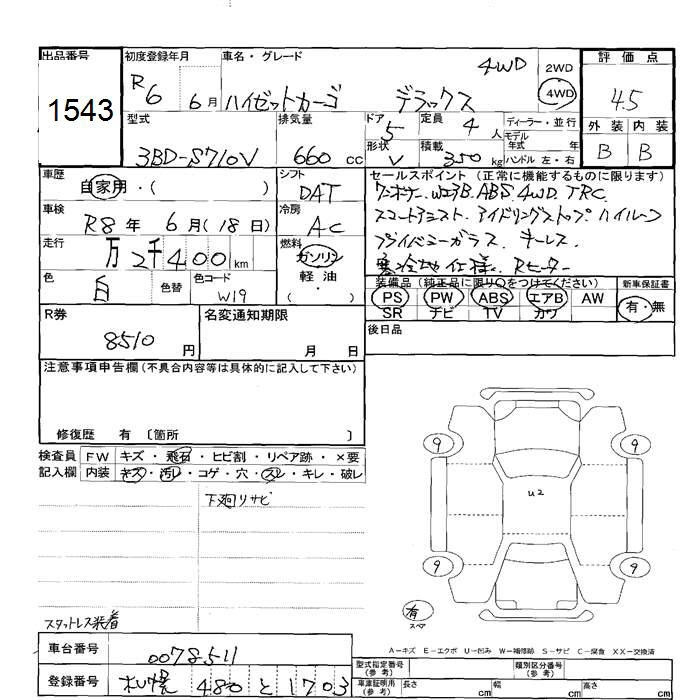 出品番号
1543
初度登録年月
R6 6月
車名・グレード
ハイゼットカーゴ デラックス 4WD
2WD
4WD
評価点
4.5
外装 内装
B B
型式
3BD-S710V
排気量
660 cc
ドア
5
形状
V
定員
4 人
積載
350 kg
ディーラー・並行
モデル
年式 年
ハンドル 左・右
車歴
自家用・( )
車検
R8年 6月(18日)
走行
万 2千400 km
色
白
色替
色コード
W19
シフト
DAT
冷房
AC
燃料
ガソリン
軽油
( )
セールスポイント (正常に機能するものに限ります)
ワンオーナー.WエアB.ABS.4WD.TRC.
スマートアシスト.アイドリングストップ ハイルーフ
プライバシーガラス.キーレス.
寒冷地仕様.Rヒーター
装備品(純正品に限り○をつけてください)
PS PW ABS エアB AW
SR ナビ TV カワ
新車保証書
有・無
後日品
R券
8510 円
名変通知期限
月 日
注意事項申告欄(不具合内容等は具体的に記入して下さい)
修復歴 有 〔箇所 〕
検査員 FW キズ・飛石・ヒビ割・リペア跡・×要
記入欄 内装 キズ・汚レ・コゲ・穴・スレ・キレ・破レ
下廻りサビ
スタットレス装着
9 9
U2
9 9
有
スペア
A-キズ E-エクボ U-凹み W-補修跡 S-サビ C-腐食 XX-交換済
車台番号
0078511
登録番号
札幌 480 と 1703
型式指定番号
(参考)
類別区分番号
(参考)
車庫証明用
(参考)
長さ cm 幅 cm 高さ cm